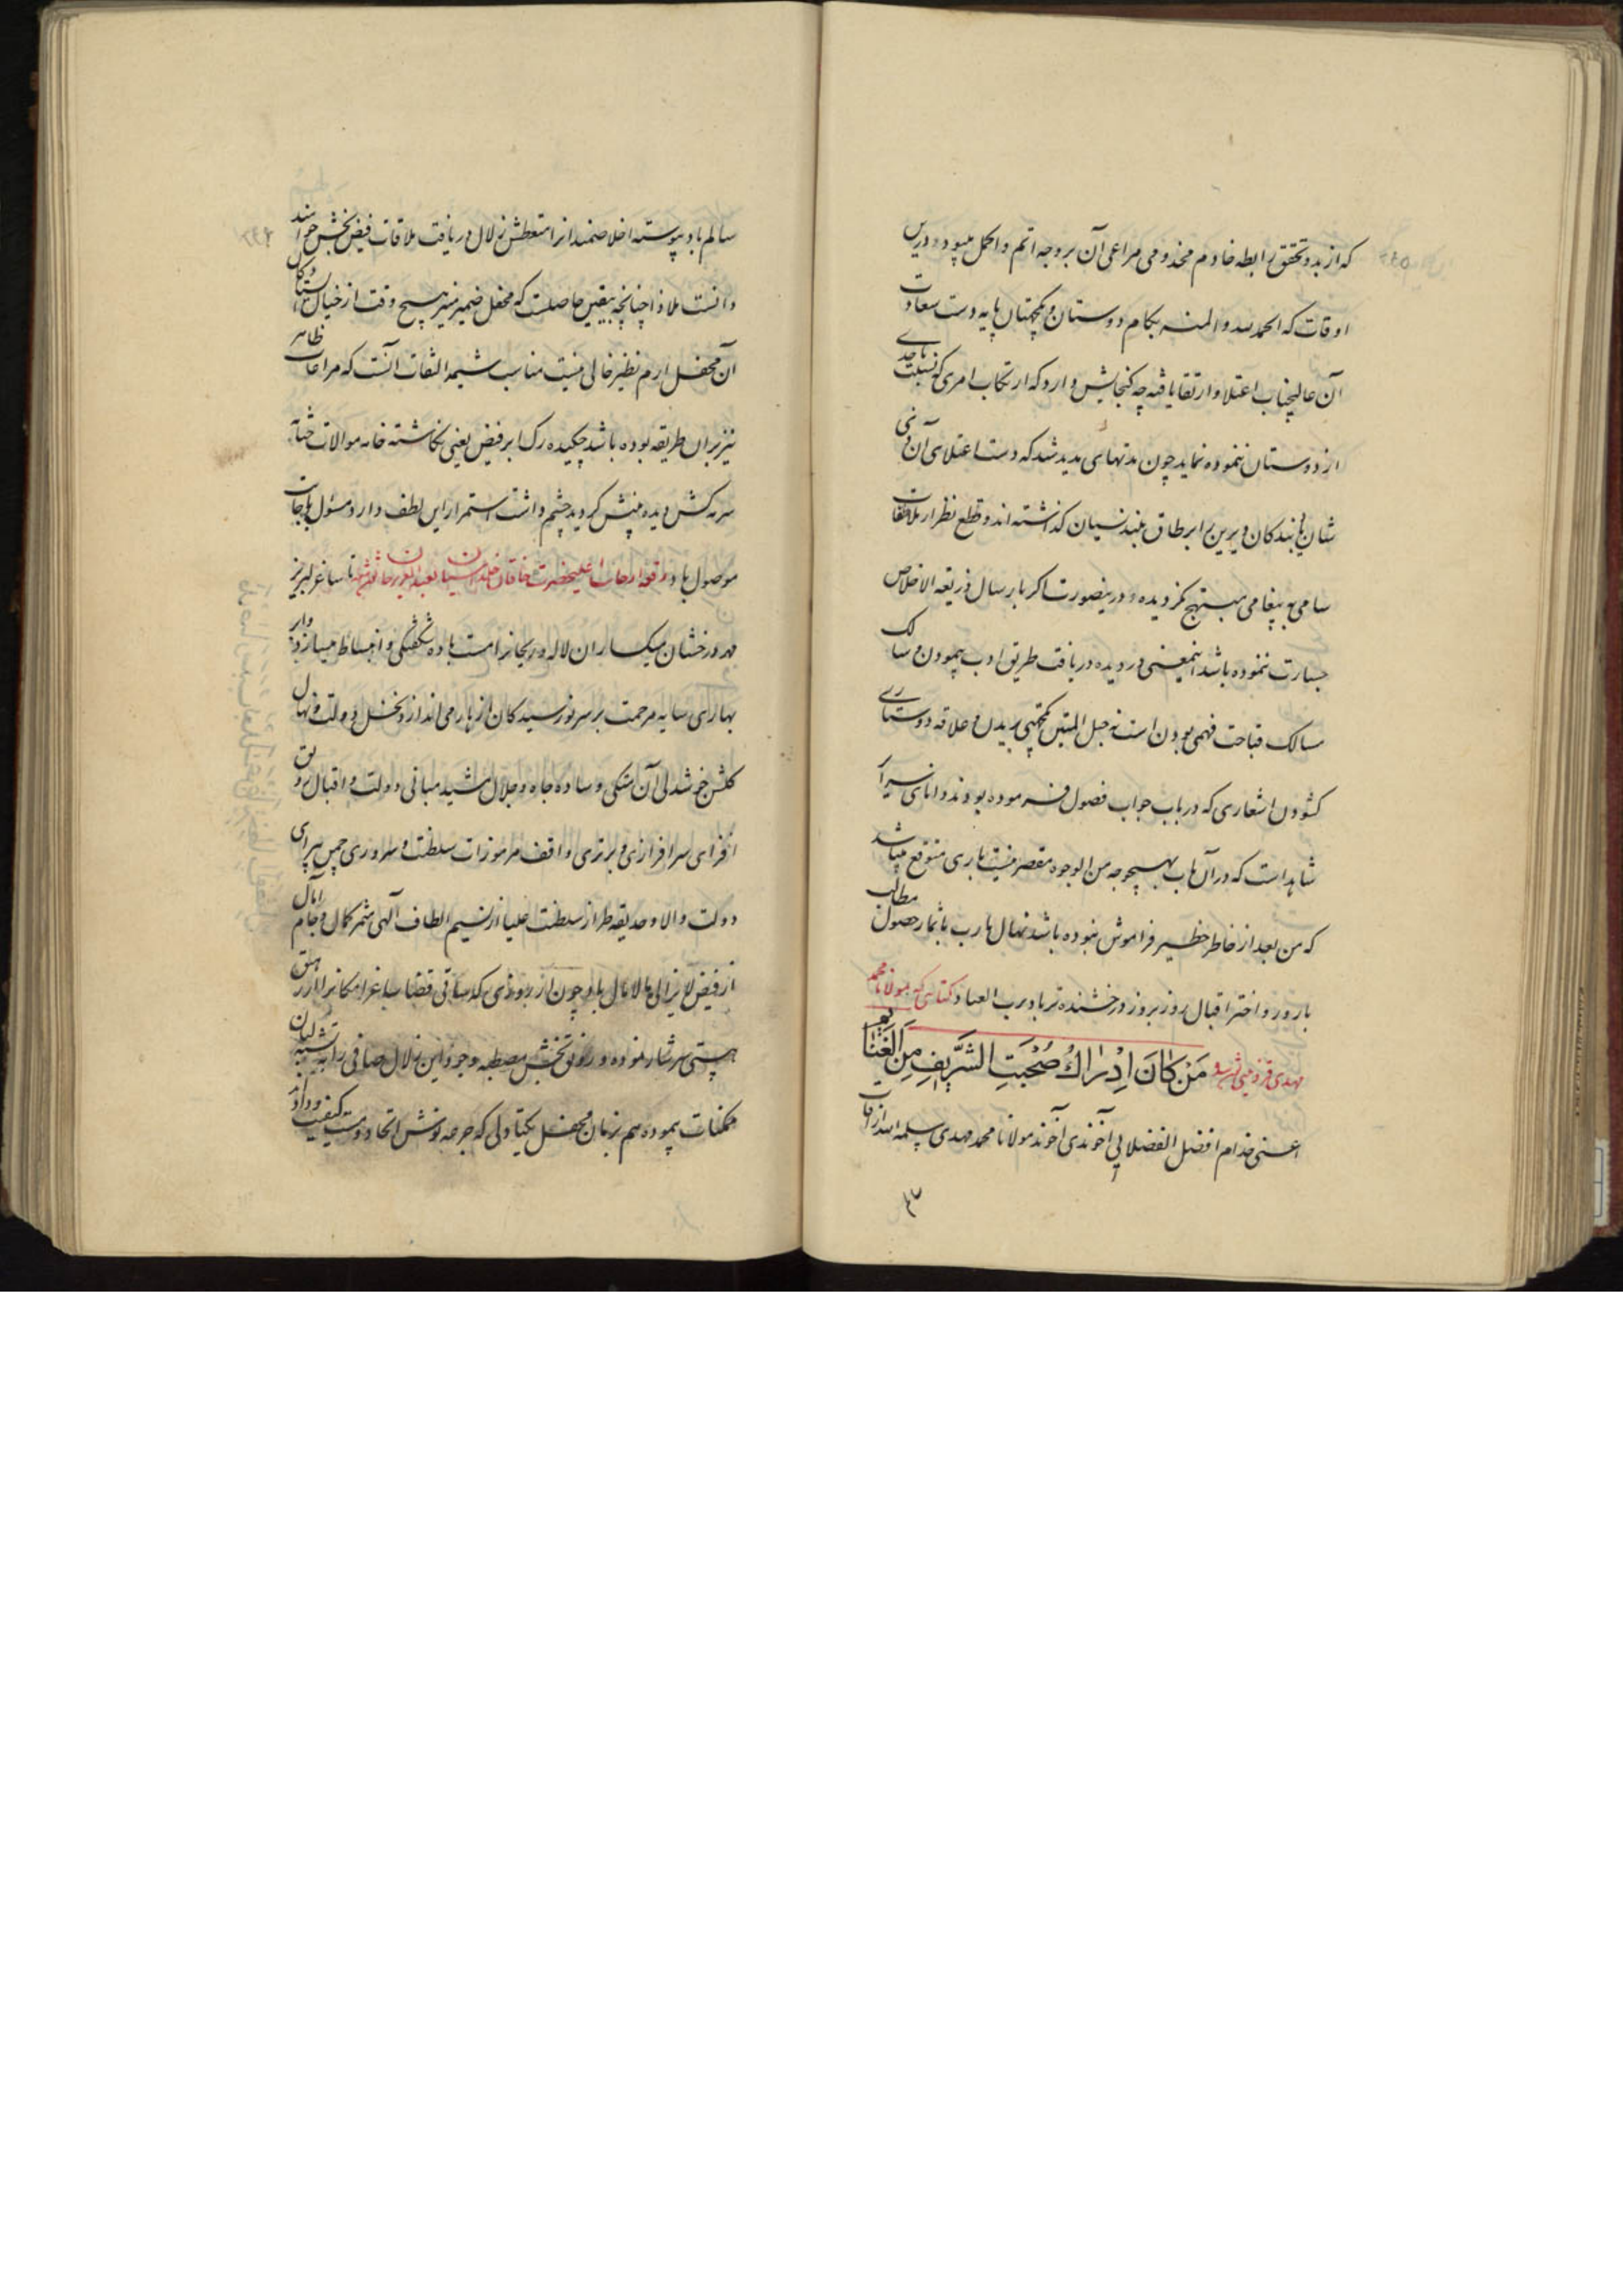 که از بدو تحقق رابطه خادم مخدومی مراعی آن بر وجه اتم و اکمل میبود درین
اوقات که الحمد لله و المنه بکام دوستان و یکجهتان پایه دست سعادت
آن عالیجناب اعتلا و ارتقا یافته چه گنجایش دارد که ارتکاب امری که نسبت باحدی
از دوستان ننموده نماید چون مدتهای مدید شد که دست اعتلای آن
شان بندکان دیرین را بر طاق بلند نسیان گذاشته اند و قطع نظر از ملاقات
سامی به پیغامی مبتهج نگردیده درینصورت اگر بارسال ذریعة الاخلاص
جسارت ننموده باشد اینمعنی در دیده دریافت طریق ادب پیمودن و سالک
مسالک قباحت فهمی بودن است نه حبل المتین یکجهتی بریدن و علاقه دوستاری
کشودن اشعاری که در باب جواب فصول فرموده بودند دانای
شاهد است که در آن باب بهیچوجه من الوجوه مقصر نیست باری متوقع میباشد
که من بعد از خاطر خطیر فراموش نبوده باشد نهال مارب باثمار حصول مطالب
بارور و اختر اقبال روز بروز درخشنده تر باد برب العباد کتابتی که بمولانا محمد
مهدی قزوینی نوشته من کان ادراک صحبت الشریف من
اعنی خدام افضل الفضلایی آخوندی آخوند مولانا محمد مهدی سلمه الله
سالم باد پیوسته اخلاصمند از متعطش زلال دریافت ملاقات فیض بخش
دانست ملاذا چنانچه بیقین حاصلست که محفل ضمیر منیر هیچ وقت از خیال
آن محفل ارم نظیر خالی نیست مناسب شیمه التفات آنست که مراعات ظاهر
نیز بران طریقه بوده باشد چکیده رک ابر فیض یعنی نگاشته خامه موالات
سرمه کش دیده بینش گردید چشم داشت استمرار این لطف دارد مسئول باجابت
موصول باد رقعه از جانب اعلیحضرت خاقان بعبد العزیز خان نوشته تا ساغر لبریز
مهر درخشان میکساران لاله و ریحانرا مست باده شگفتگی و انبساط میسازد
بهارای سایه مرحمت بر سر نورسیدگان ازهار می اندازد نخل دولت و نهال
گلشن خوشدلی آن متکی وساده جاه و جلال مشید مبانی دولت و اقبال رونق
افزای سرافرازی و برتری واقف مرموزات سلطنت و سروری چمن پیرای
دولت والا و حدیقه طراز سلطنت علیا از نسیم الطاف الهی مثمر کمال و جام آمال
از فیض لایزالی مالامال باد چون از بروزی که ساقی قضا ساغر امکانرا از رحیق
هستی سرشار نموده و رونق بخش مصطبه وجود این زلال صافی را به تشنه لبان
ممکنات پیموده هم زبان محفل یکتا دلی که جرعه نوش اتحاد و مست کیفیت وداد